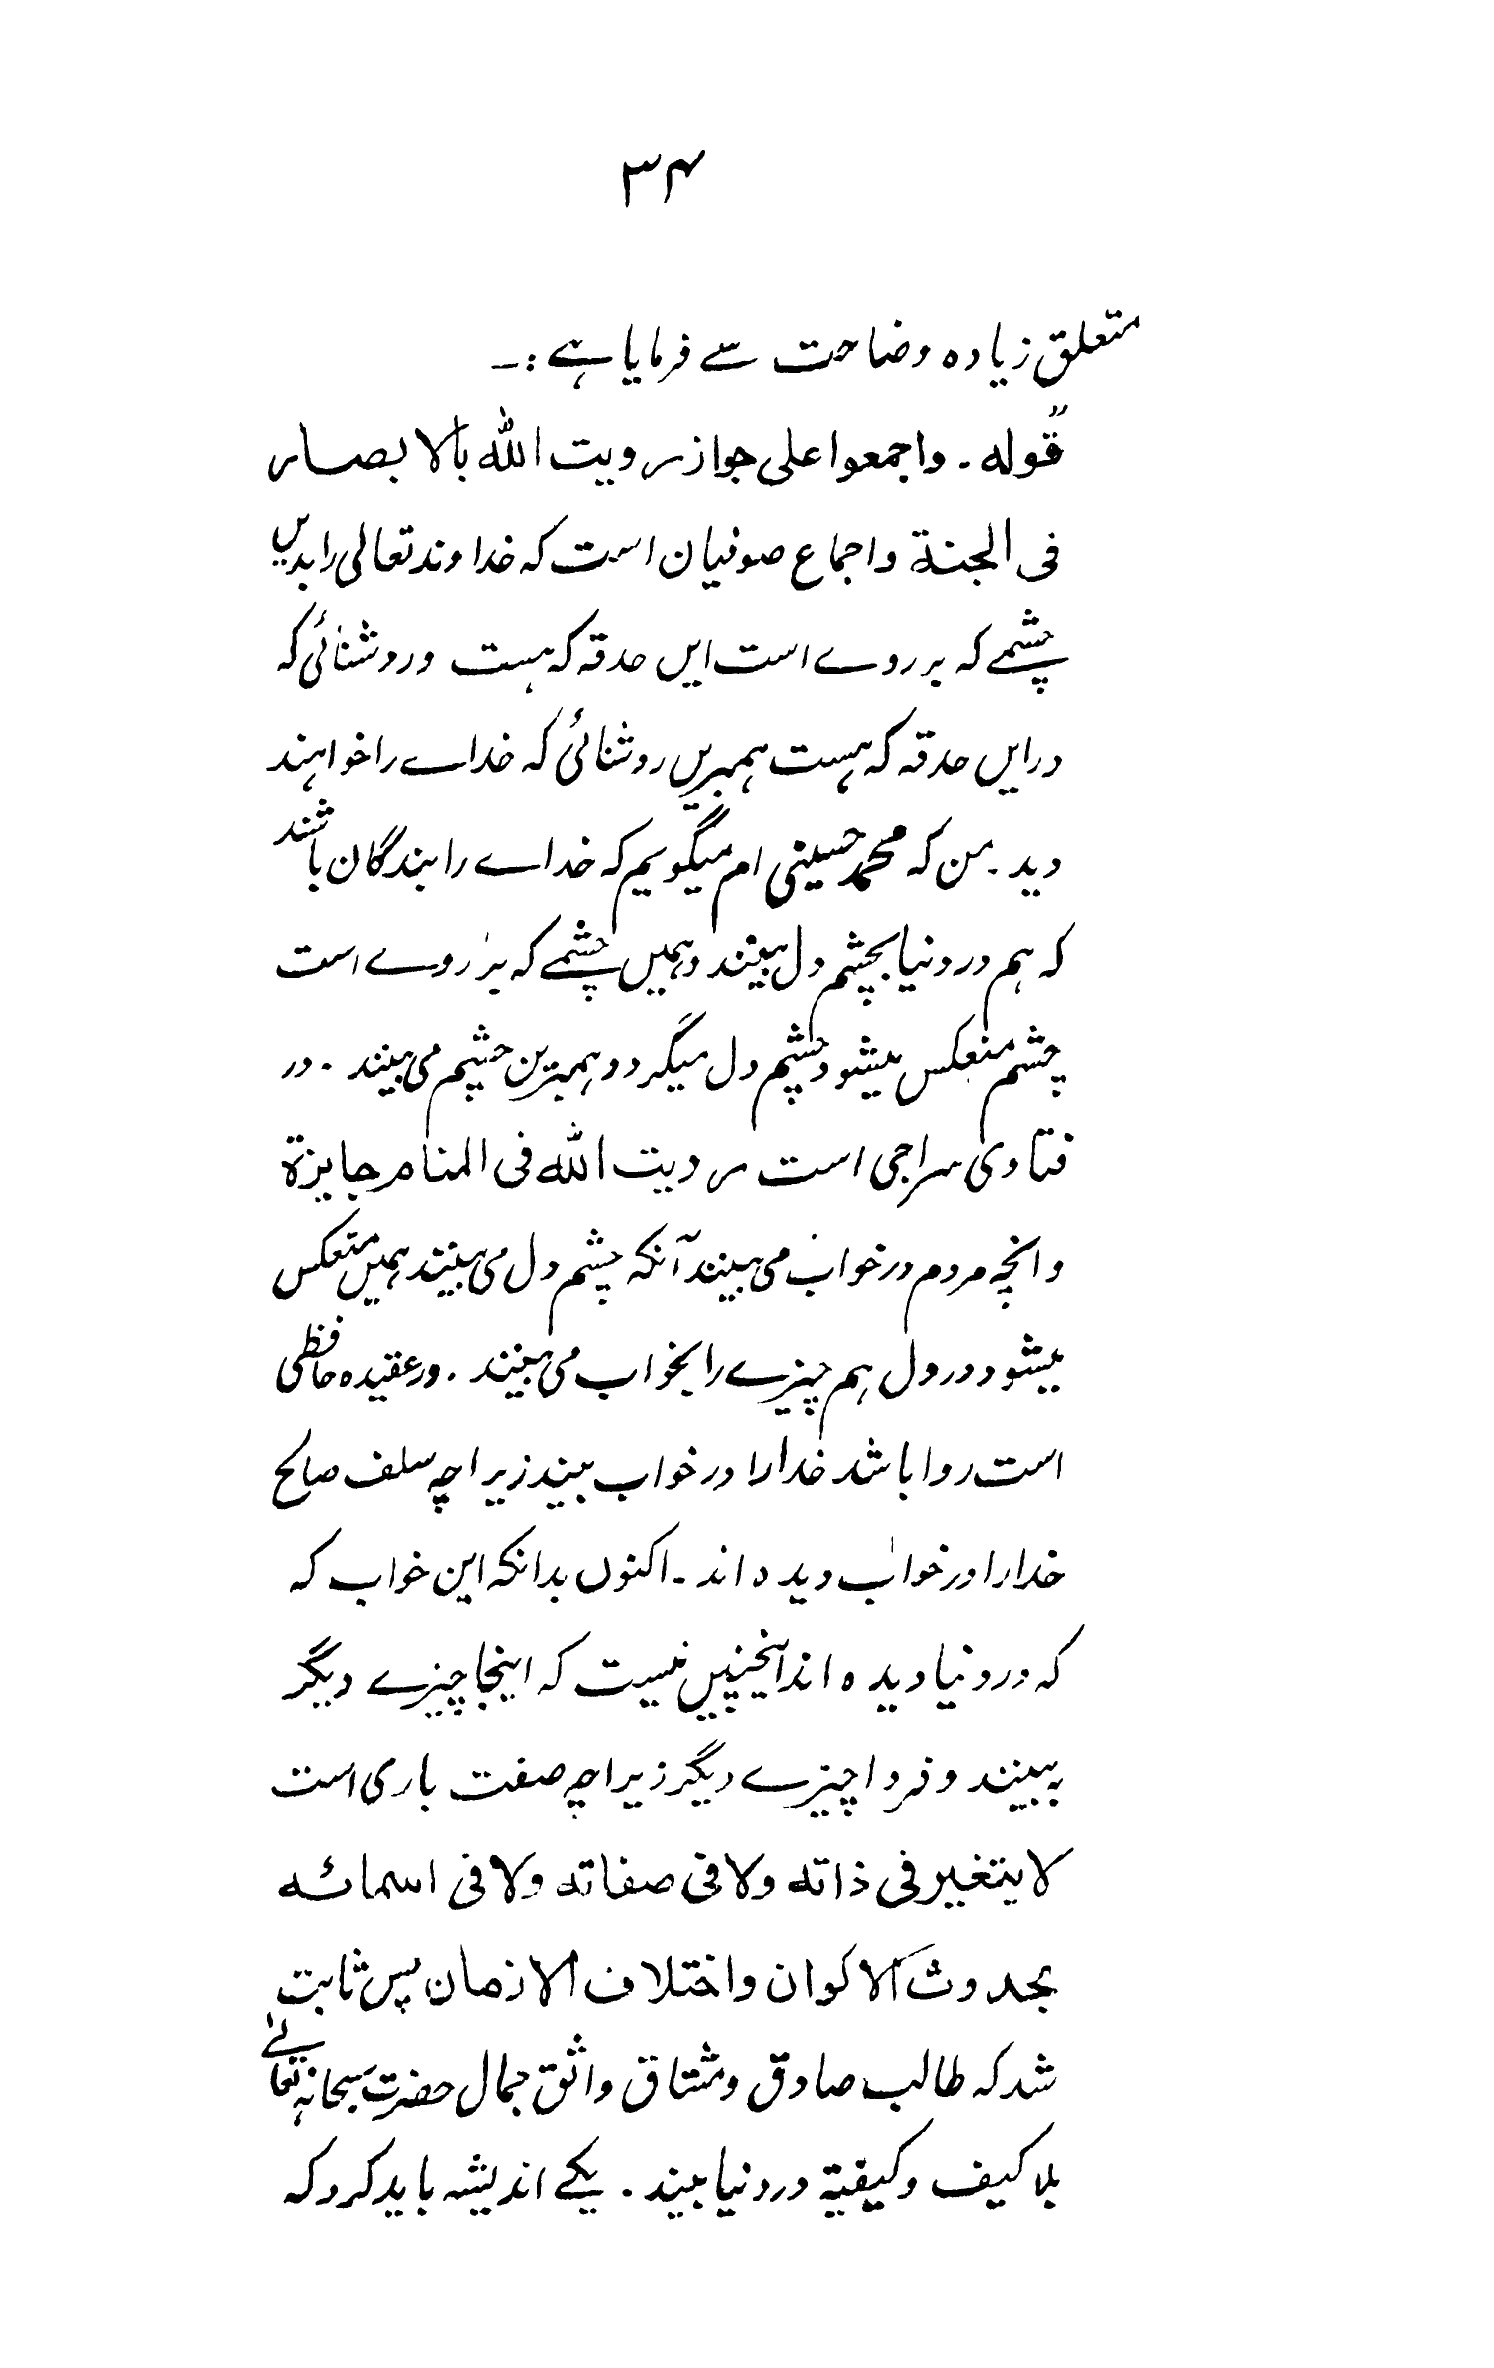 ۳۴
متعلق زیادہ وضاحت سے فرمایا ہے :۔
"قولہ ۔ واجمعوا علی جواز رویت اللہ بالابصار
فی الجنة واجماع صوفیان است کہ خداوند تعالی را بدیں
چشمے کہ بر روے است ایں حدقہ کہ ہست و روشنائی کہ
در ایں حدقہ کہ ہست ہمبریں روشنائی کہ خداے را خواہند
دید ۔ من کہ محمد حسینی ام میگویم کہ خداے را بندگان باشند
کہ ہم در دنیا بچشم دل بینند و ہمیں چشمے کہ بر روے است
چشم منعکس میشود چشم دل میگردد و ہمبرین چشم می بیند ۔ در
فتاوی سراجی است رویت اللہ فی المنام جایزة
وانچہ مردم در خواب می بیند آنکہ چشم دل می بیند ہمیں منعکس
میشود در دل ہم چیزے را بخواب می بینند ۔ در عقیدہ حافظی
است روا باشد خدا را در خواب بیند زیراچہ سلف صالح
خدا را در خواب دیدہ اند ۔ اکنوں بدانکہ این خواب کہ
کہ در دنیا دیدہ اند اینچنیں نیست کہ اینجا چیزے دیگر
بہ بینند و فردا چیزے دیگر زیراچہ صفت باری است
لا یتغیر فی ذاتہ ولا فی صفاتہ ولا فی اسمائہ
بحدوث الاکوان واختلاف الازمان پس ثابت
شد کہ طالب صادق و مشتاق واثق جمال حضرت سبحانہ تعالیٰ
بلا کیف و کیفیة در دنیا بیند ۔ یکے اندیشہ باید کرد کہ